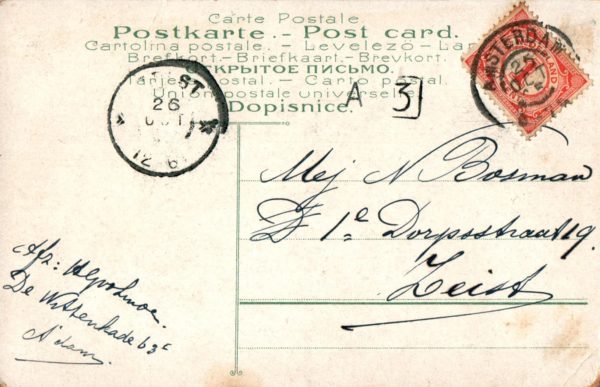 Carte Postale
Postkarte. - Post card.
Cartolina postale. - Levelező-La
Brefkort - Briefkaart. - Brevkort.
ОТКРЫТОЕ ПИСЬМО.
Tarjeta postal. - Carto postal.
Union postale universelle
Dopisnice.
A 3
AMSTERDAM
25
ST
26
OCT
12
Mej N Bosman
1e Dorpsstraat 19.
Zeist
Afz:
De Wittenkade 63c
A'dam